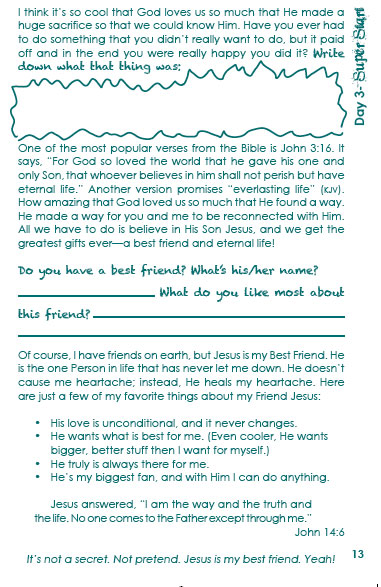 I think it's so cool that God loves us so much that He made a
huge sacrifice so that we could know Him. Have you ever had
to do something that you didn't really want to do, but it paid
off and in the end you were really happy you did it? Write
down what that thing was:
Day 3- Super Start
One of the most popular verses from the Bible is John 3:16. It
says, "For God so loved the world that he gave his one and
only Son, that whoever believes in him shall not perish but have
eternal life." Another version promises "everlasting life" (KJV).
How amazing that God loved us so much that He found a way.
He made a way for you and me to be reconnected with Him.
All we have to do is believe in His Son Jesus, and we get the
greatest gifts ever—a best friend and eternal life!
Do you have a best friend? What's his/her name?
What do you like most about
this friend?
Of course, I have friends on earth, but Jesus is my Best Friend. He
is the one Person in life that has never let me down. He doesn't
cause me heartache; instead, He heals my heartache. Here
are just a few of my favorite things about my Friend Jesus:
• His love is unconditional, and it never changes.
• He wants what is best for me. (Even cooler, He wants
bigger, better stuff then I want for myself.)
• He truly is always there for me.
• He's my biggest fan, and with Him I can do anything.
Jesus answered, "I am the way and the truth and
the life. No one comes to the Father except through me."
John 14:6
It's not a secret. Not pretend. Jesus is my best friend. Yeah!
13